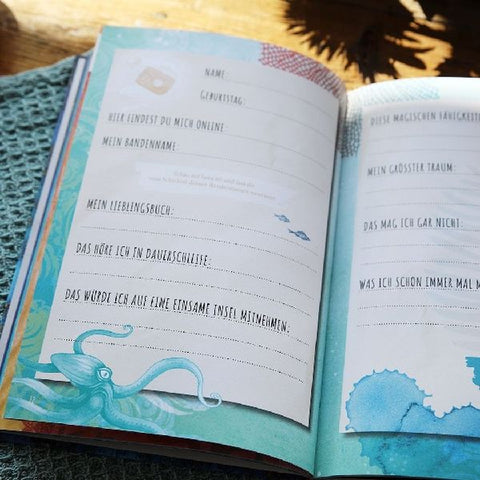 NAME:
GEBURTSTAG:
HIER FINDEST DU MICH ONLINE:
MEIN BANDENNAME:
MEIN LIEBLINGSBUCH:
DAS HÖRE ICH IN DAUERSCHLEIFE:
DAS WÜRDE ICH AUF EINE EINSAME INSEL MITNEHMEN:
DIESE MAGISCHEN FÄHIGKEITE
MEIN GRÖSSTER TRAUM:
DAS MAG ICH GAR NICHT:
WAS ICH SCHON IMMER MAL M